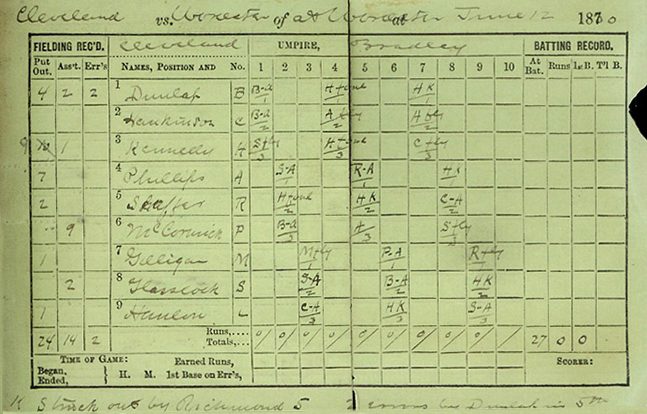 Cleveland vs. Worcester of at Worcester at June 12 1880
FIELDING REC'D. Cleveland UMPIRE, Bradley BATTING RECORD.
Put Out. Ass't. Err's NAMES, POSITION AND No. 1 2 3 4 5 6 7 8 9 10 At Bat. Runs 1st B. T'l B.
4 2 2 1 Dunlap B B-A/1 H K/1
2 Hankinson C B-A/2 A fly/2 A fly/2
1 3 Kennedy H S fly/3 C fly/3
7 4 Phillips A S-A/1 R-A/1 H K/1
2 5 Shaffer R H K/2 C-A/2
9 6 McCormick P B-A/3 A/3 S fly/3
1 7 Gilligan M M fly/1 P-A/1 R fly/1
2 8 Glasscock S S-A/2 B-A/2 H K/2
1 9 Hanlon L C-A/3 H K/3 S-A/3
24 14 2 Runs,.... Totals,... 0 0 0 0 0 0 0 0 0 27 0 0
TIME OF GAME: Earned Runs, SCORER:
Began, Ended, H. M. 1st Base on Err's,
K Struck out by Richmond 5 2 errors by Dunlap in 5th